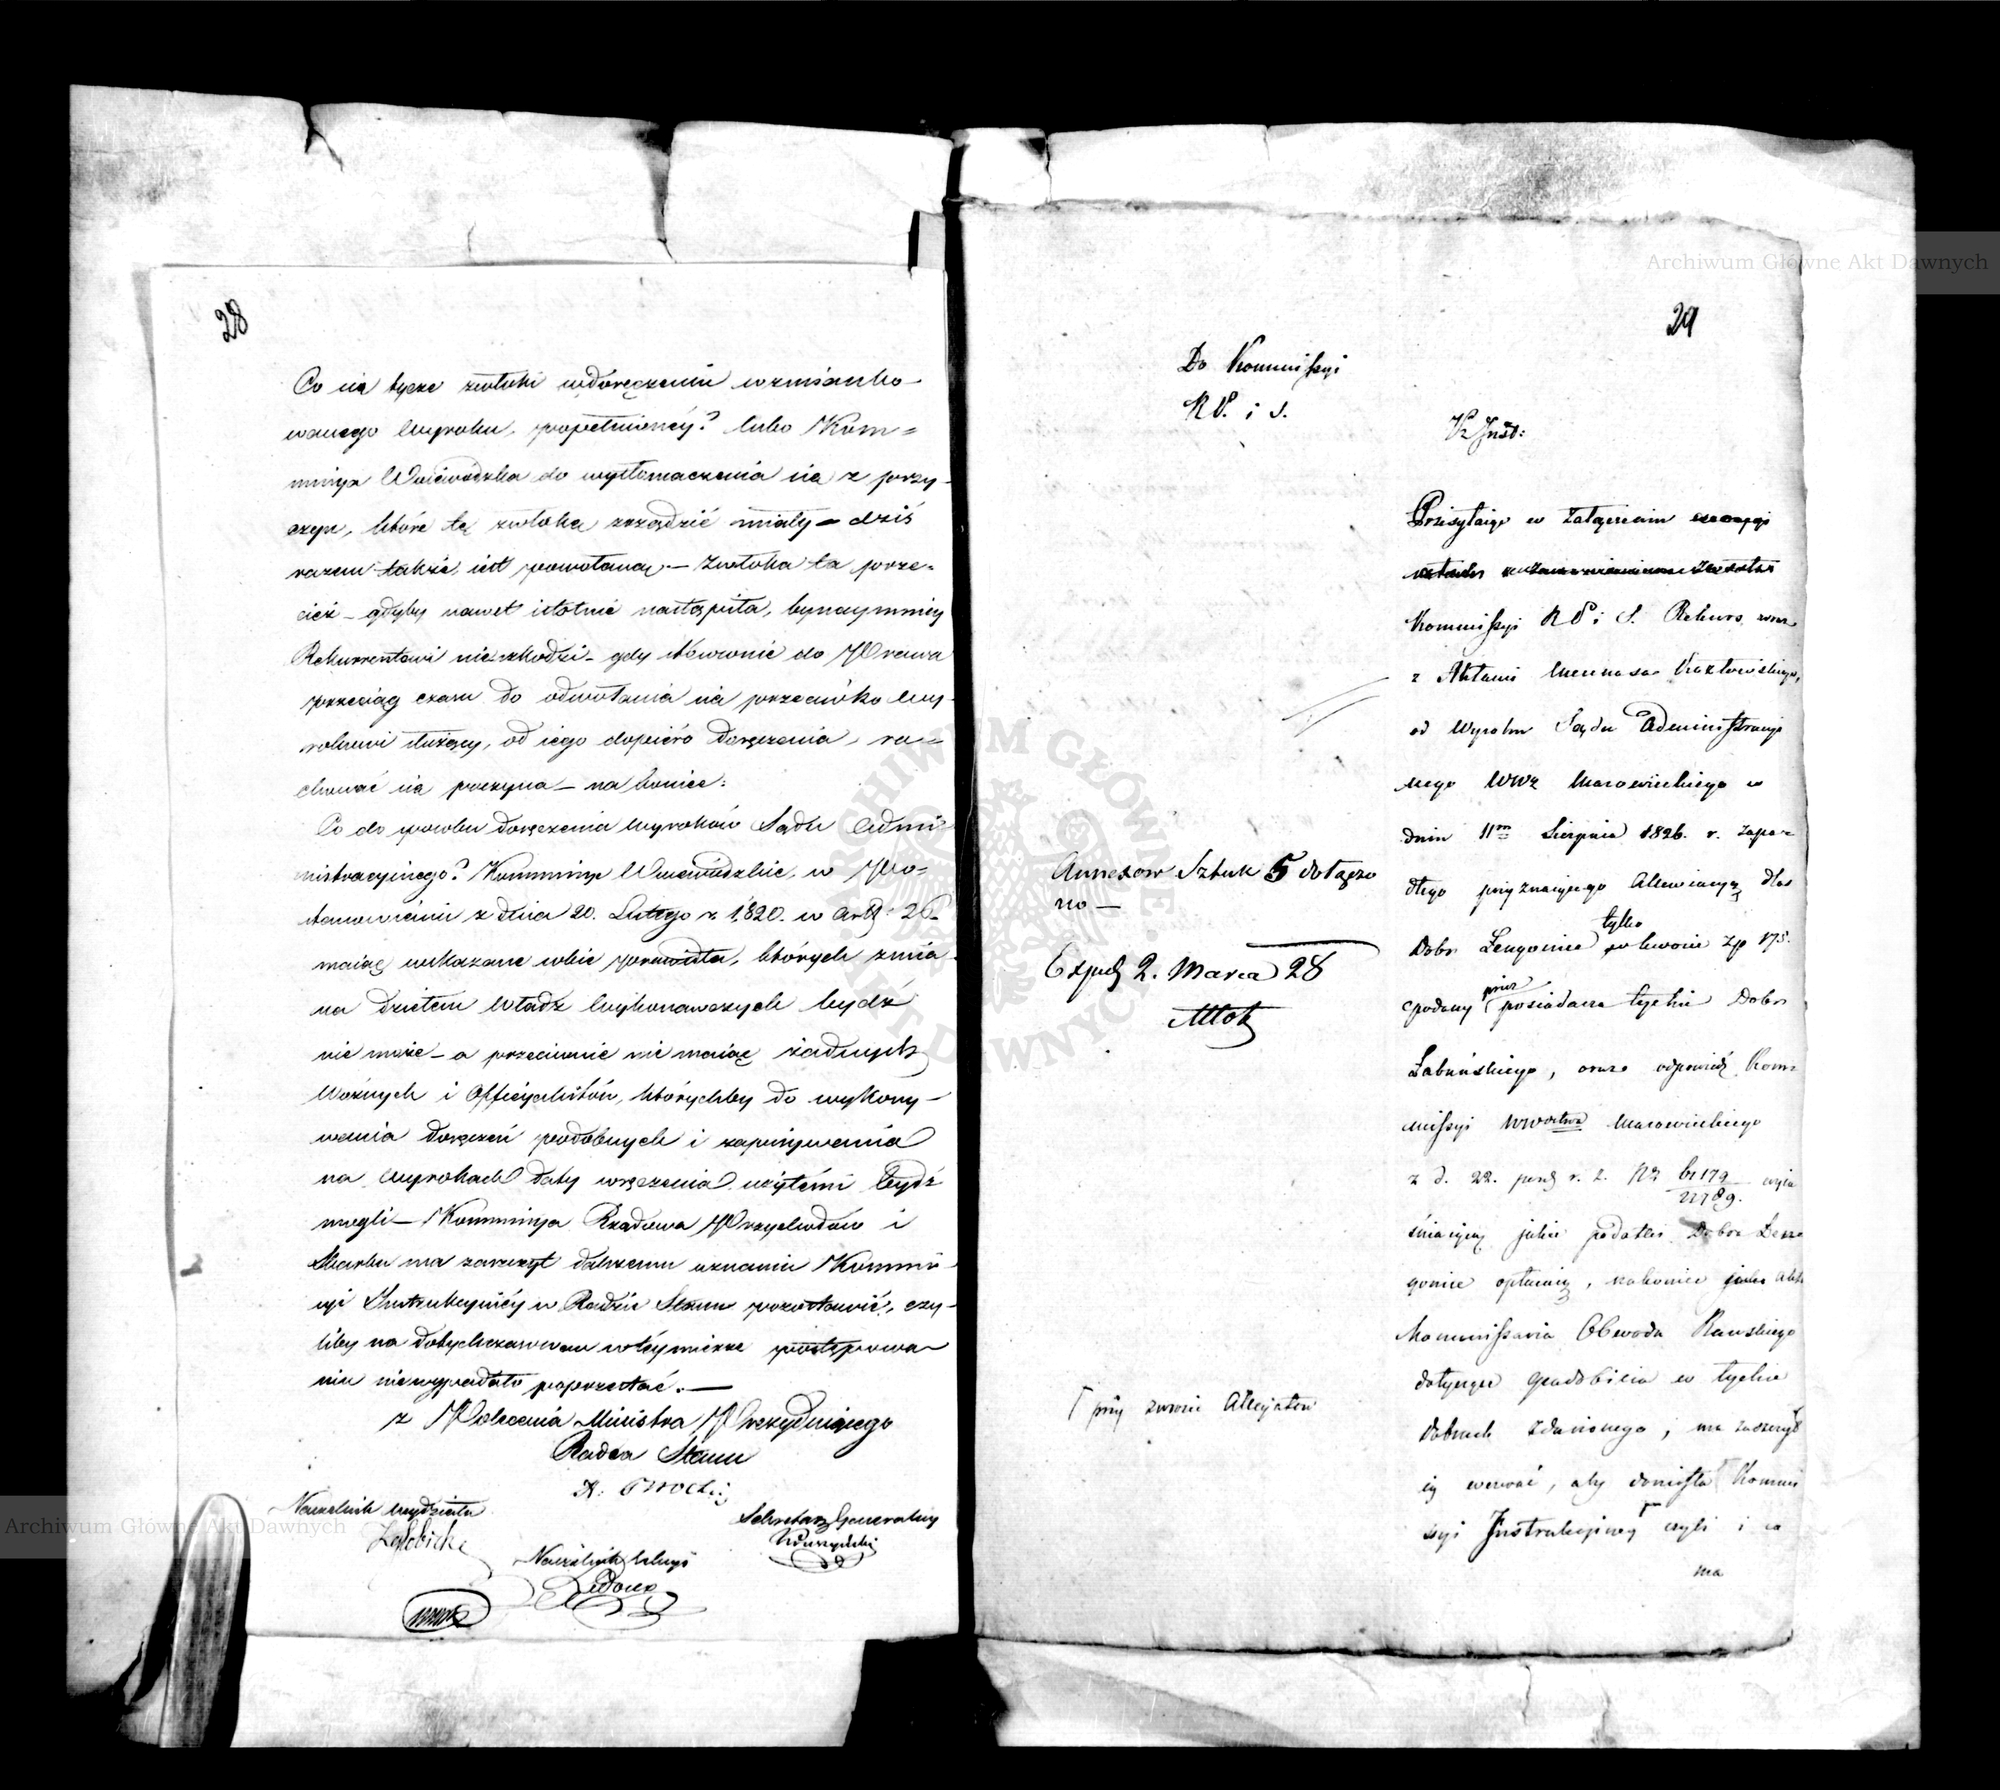 28
Co się tycze zwłoki w doręczeniu wzmianko-
wanego Wyroku, popełnionéy? lubo Kom=
missya Woiewodzka do wytłomaczenia się z przy-
czyn, które tę zwłokę zrządzić miały – dziś
razem także iest powołaną – Zwłoka ta prze-
cież – gdyby nawet istotnie nastąpiła, bynaymniey
Rekurrentowi nieszkodzi – gdy stosownie do Prawa
przeciąg czasu do odwołania się przeciwko Wy-
rokowi służący, od iego dopiero doręczenia, ra-
chować się poczyna – na koniec:
Co do sposobu doręczenia Wyroków Sądu Admi
nistracyinego? Kommissye Woiewódzkie, w Po=
stanowieniu z dnia 20. Lutego r. 1820. w Art: 26.
maiąc wskazane sobie prawidła, których zmia
na dziełem Władz Wykonawczych bydź
nie może – a przeciwnie nie maiąc żadnych
Woźnych i Officyalistów, którychby do wykony-
wania doręczeń podobnych i zapisywania
na Wyrokach daty wręczenia użytemi bydź
mogli – Kommissya Rządowa Przychodów i
Skarbu ma zaszczyt dalszemu uznaniu Kommis-
syi Instrukcyinéy w Radzie Stanu pozostawić, czy-
liby na dotychczasowem w téymierze postępowa-
niu niewypadało poprzestać. —
z Polecenia Ministra Prezyduiącego
Radca Stanu
Naczelnik Wydziału
Sekretarz Generalny
Naczelnik Sekcyi
29
Do Kommissyi
R P. i S.
Kz Inst:
Przesyłaiąc w załączeniu
Kommissyi R P i S. Rekurs wraz
z Aktami
od Wyroku Sądu Administracyi
nego WWz Mazowieckiego w
dniu 11m Sierpnia 1826. r. zapa=
dłego przyznaiącego Allewiacyą dla
Dobr Lengonice tylko w kwocie Zp 175.
podany przez posiadacza tychże Dobr
Łabuńskiego, oraz odpowiedź Kom=
missyi Wwodztwa Mazowieckiego
z d. 22. r. z. Nr 61179/22789. wyia
śniaiącą jakie podatki Dobra Lenn
gonice opłacaią, nakoniec
Kommissarza Obwodu Rawskiego
dotyczące gradobicia w tychże
dobrach zdarzonego; ma zaszczyt
iey wezwać, aby doniosła Kommis
syi Instrukcyiney czyli i co
ma
Annexow Sztuk 5 dołączo
no —
Exped 2. Marca 28
Γ przy zwrocie Allegatow
Archiwum Główne Akt Dawnych
Archiwum Główne Akt Dawnych
ARCHIWUM GŁÓWNE AKT DAWNYCH